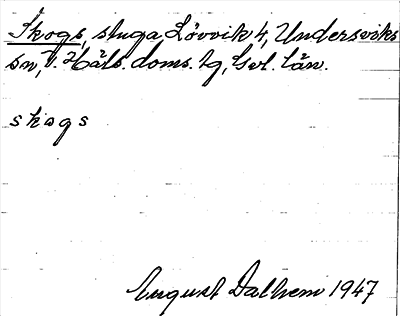 Skogs, stuga Lövvik 4, Undersviks
sn, V. Häls. doms. tg, Gvl. län.
skogs
August Dalhem 1947